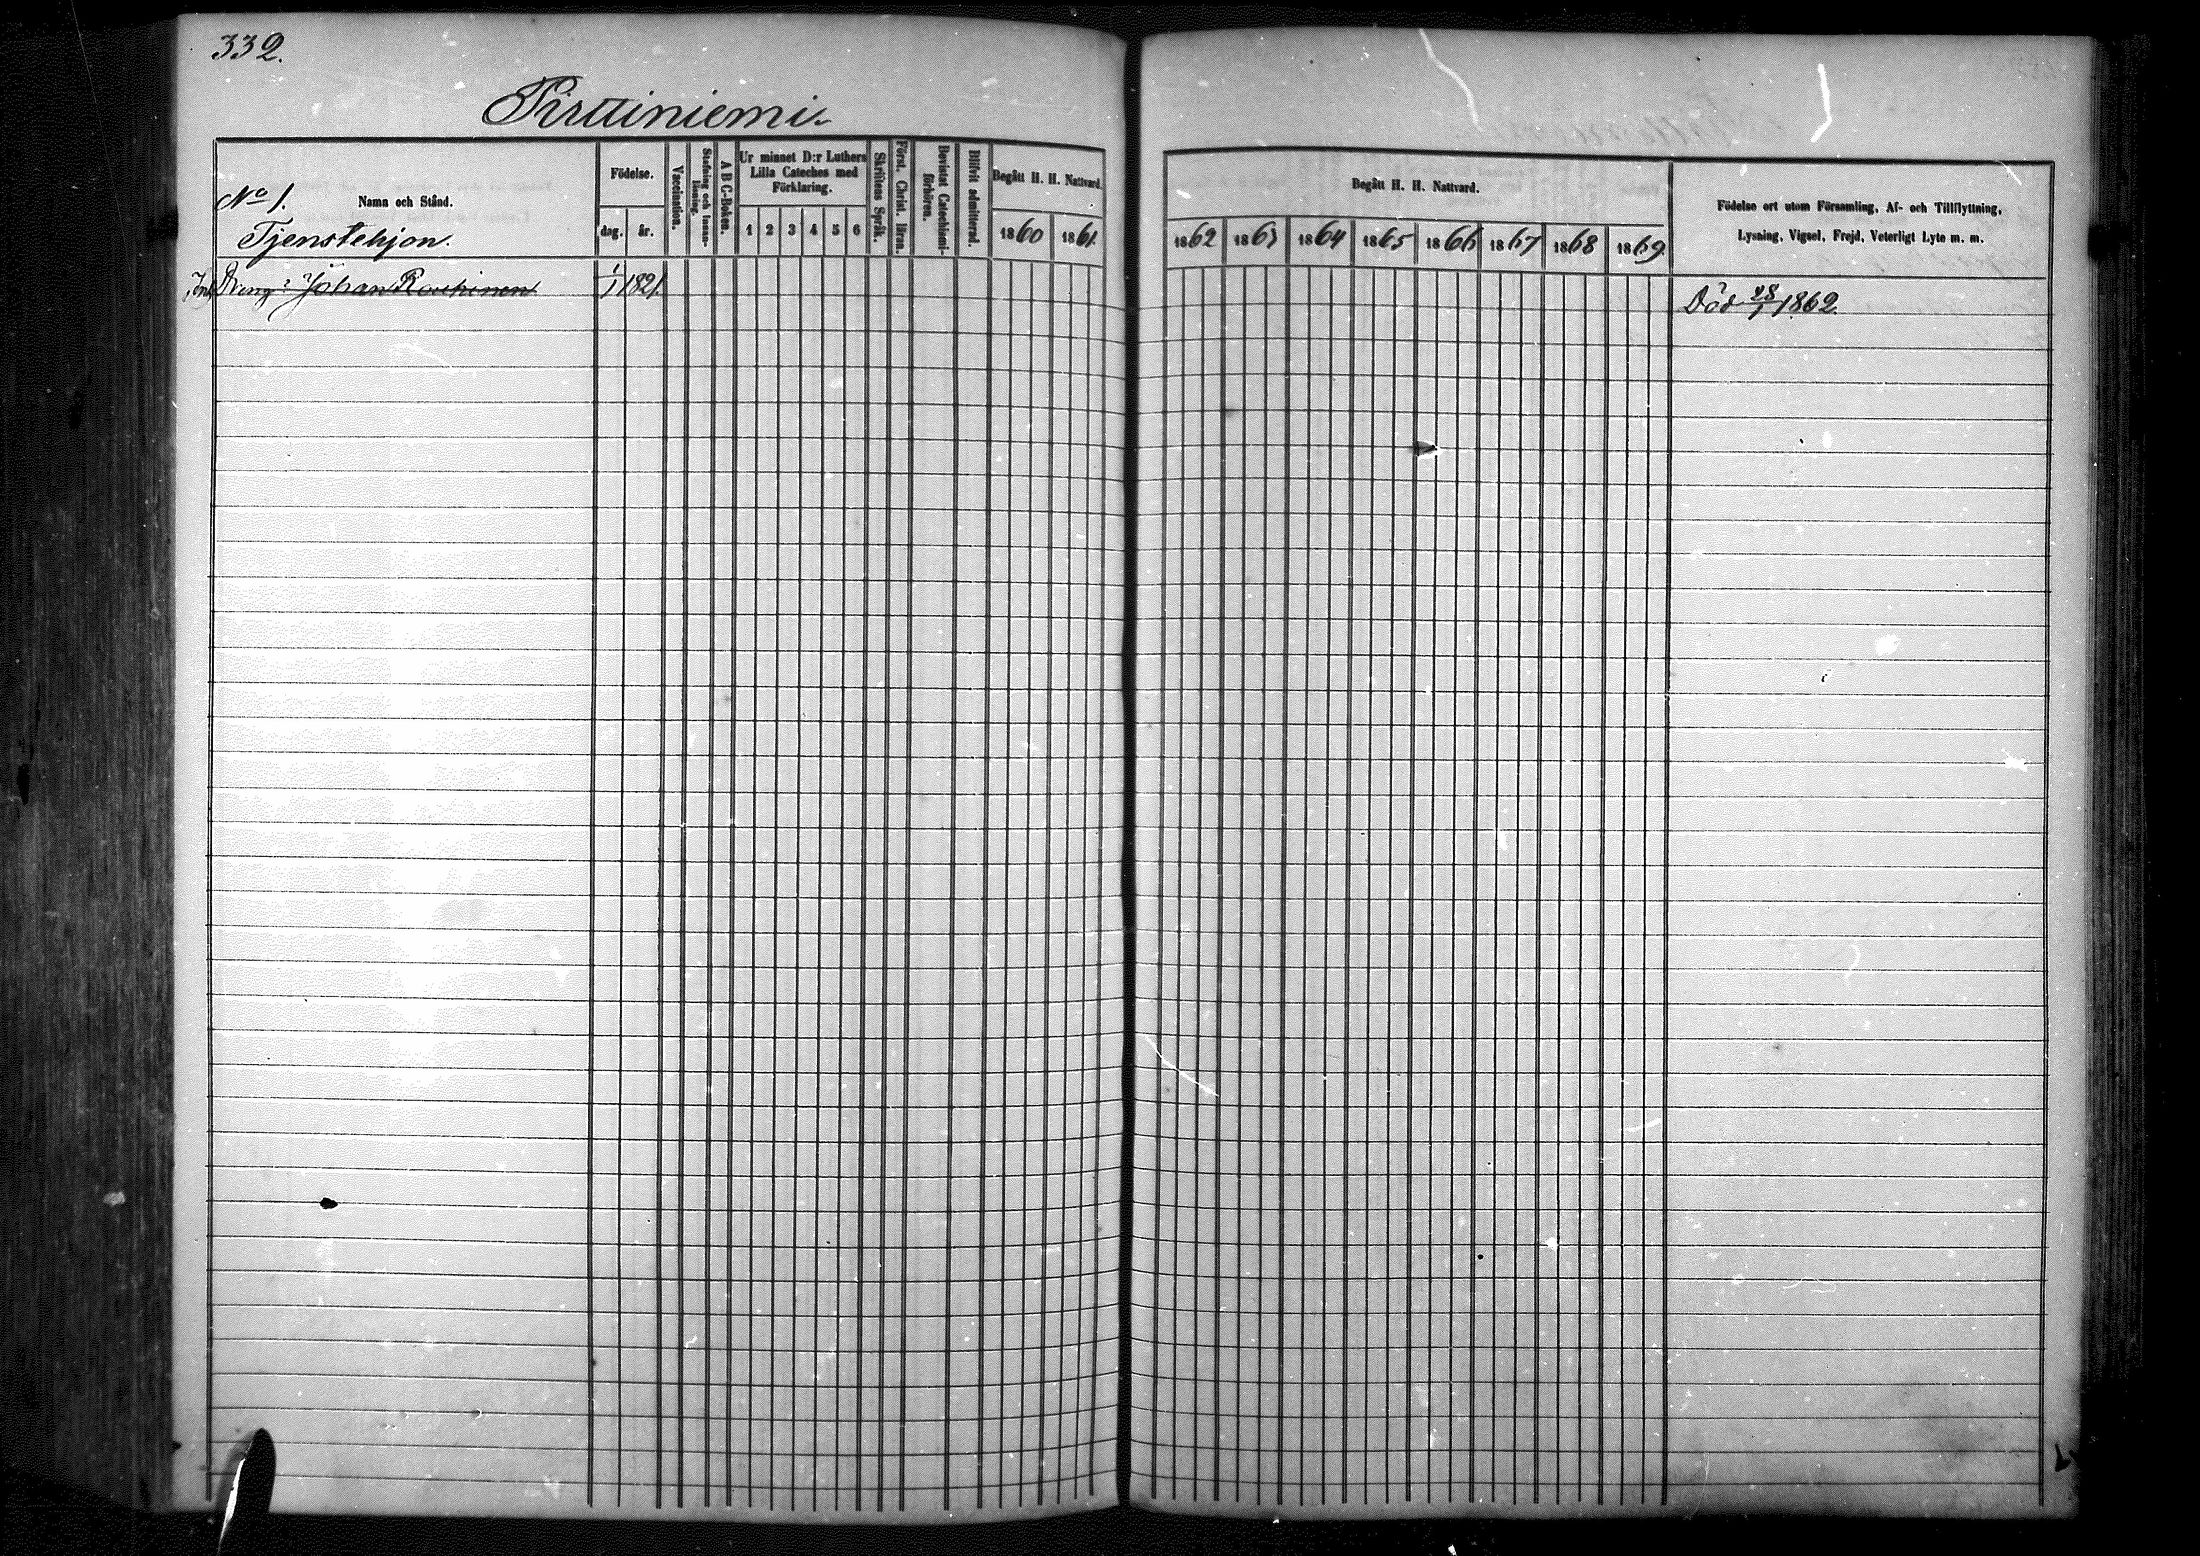 332.
Pirttiniemi.
No 1.
Namn och Stånd.
Tjenstehjon.
Födelse.
dag.
år.
Vaccination.
Stafning och Innanläsning.
A B C-Boken.
Ur minnet D:r Luthers
Lilla Cateches med
Förklaring.
1 2 3 4 5 6
Skriftens Språk.
Först. Christ. läran.
Bevistat Catechismi-
förhören.
Blifvit admitterad.
Begått H. H. Nattvard.
1860 1861.
Begått H. H. Nattvard.
1862 1863 1864 1865 1866 1867 1868 1869.
Födelse ort utom Församling, Af- och Tillflyttning,
Lysning, Vigsel, Frejd, Veterligt Lyte m. m.
Dreng: Johan 1/1 1821.
Död 28/1 1862.